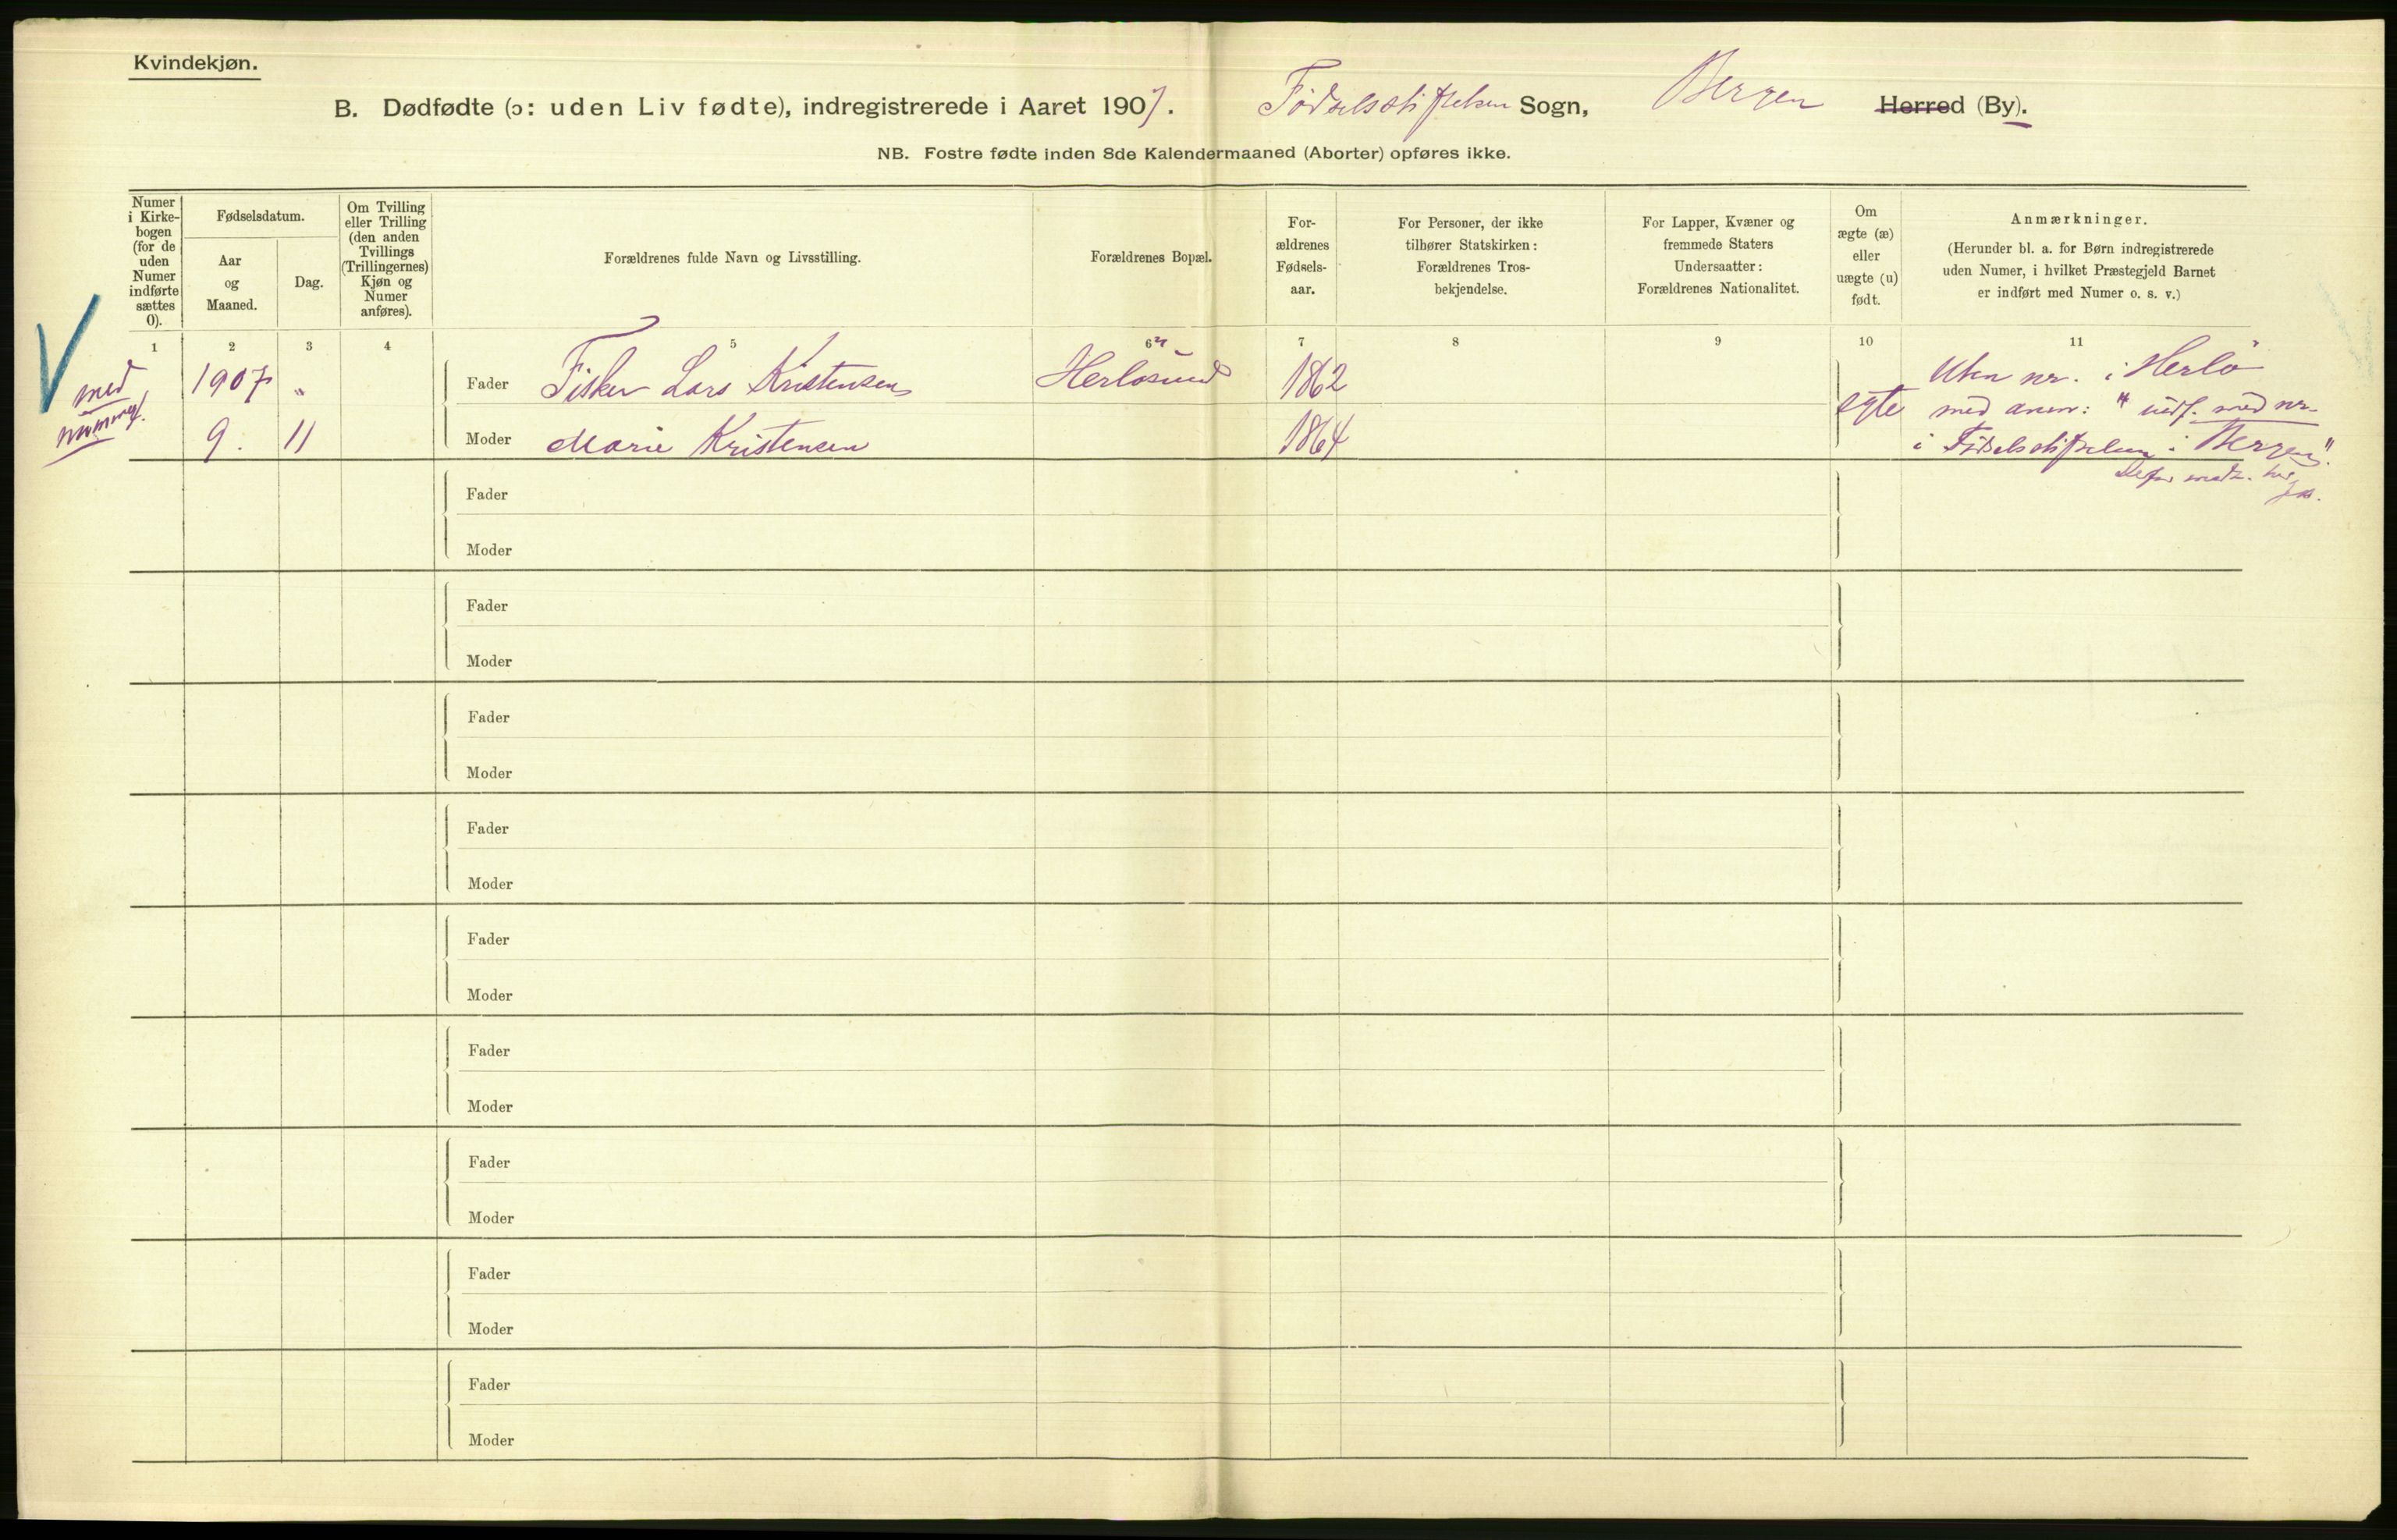 Kvindekjøn.
B. Dødfødte (ɔ: uden Liv fødte), indregistrerede i Aaret 1907. Fødselsstiftelsen Sogn, Bergen Herred (By).
NB. Fostre fødte inden 8de Kalendermaaned (Aborter) opføres ikke.
Numer
i Kirke-
bogen
(for de
uden
Numer
indførte
sættes
0).
Fødselsdatum.
Aar
og
Maaned.
Dag.
Om Tvilling
eller Trilling
(den anden
Tvillings
(Trillingernes)
Kjøn og
Numer
anføres).
Forældrenes fulde Navn og Livsstilling.
Forældrenes Bopæl.
For-
ældrenes
Fødsels-
aar.
For Personer, der ikke
tilhører Statskirken:
Forældrenes Tros-
bekjendelse.
For Lapper, Kvæner og
fremmede Staters
Undersaatter:
Forældrenes Nationalitet.
Om
ægte (æ)
eller
uægte (u)
født.
Anmærkninger.
(Herunder bl. a. for Børn indregistrerede
uden Numer, i hvilket Præstegjeld Barnet
er indført med Numer o. s. v.)
1 2 3 4 5 6 7 8 9 10 11
med
nummer!
1907 "
9. 11
Fader Fisker Lars Kristensen Herløsund 1862
Moder Marie Kristensen 1864
egte
Uten nr. i Herlö
med anm: " indf. med nr.
i Fødselsstiftelsen i Bergen".
Fader
Moder
Fader
Moder
Fader
Moder
Fader
Moder
Fader
Moder
Fader
Moder
Fader
Moder
Fader
Moder
Fader
Moder